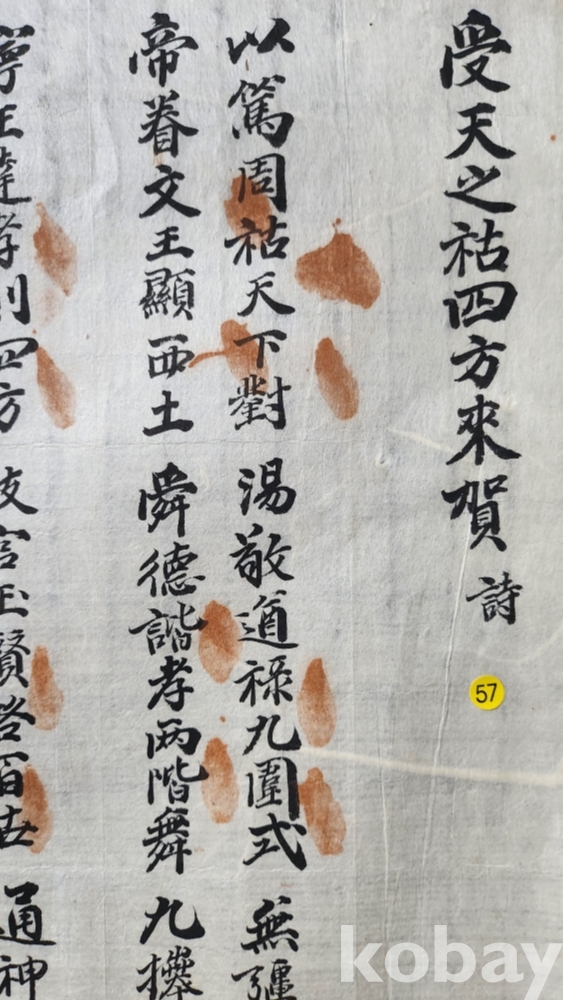 受天之祜四方來賀 詩
57
以篤周祜天下對 湯敬道祿九圍式 無疆
帝眷文王顯西土 舜德諧孝兩階舞 九
寧王 孝則四方 言玉賢 百 通神
kobay